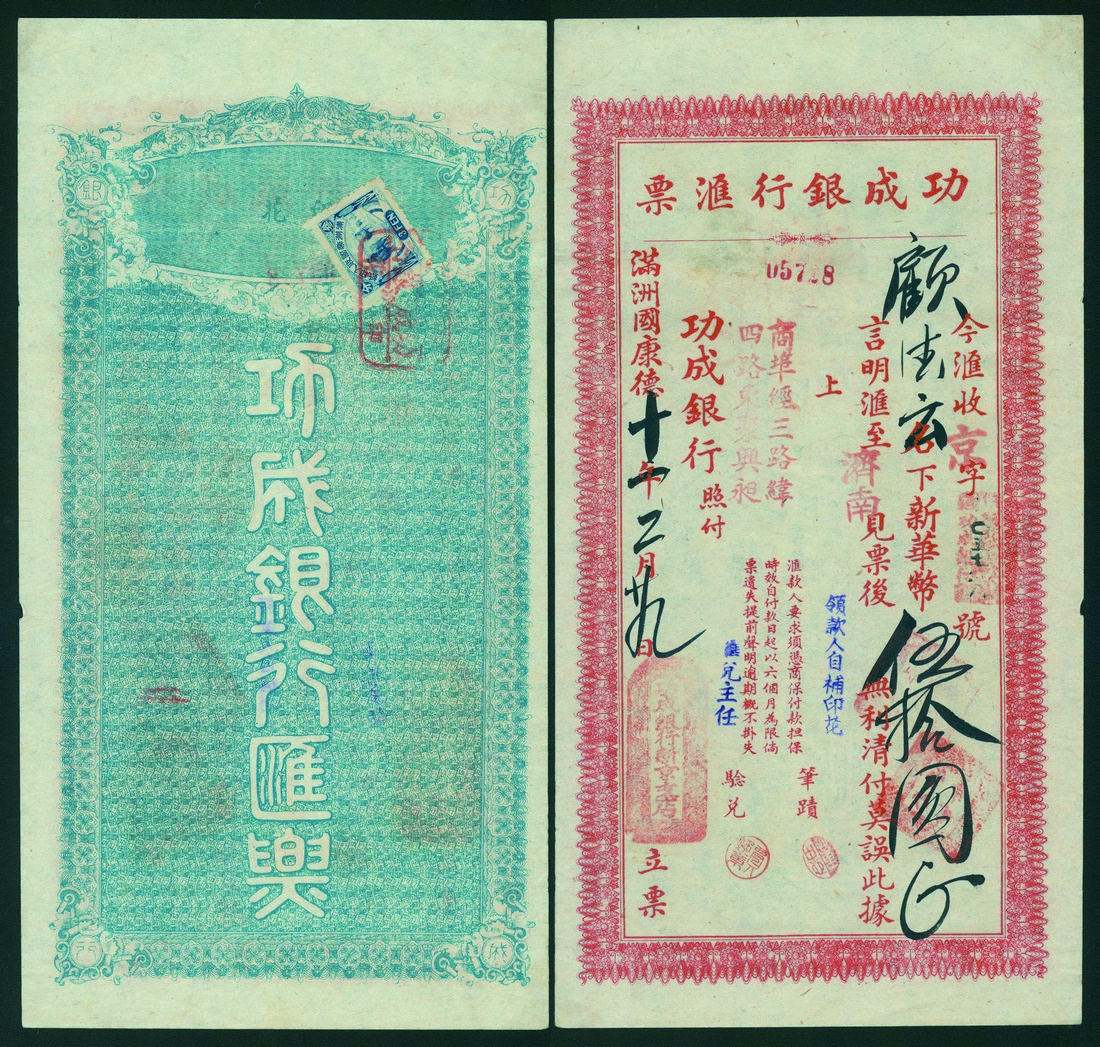 功成銀行滙票
功
銀
行
功成銀行滙票
今滙收京字
號
顧
名下新華幣伍拾圓正
言明滙至濟南見票後無利清付莫誤此據
上
領款人自補印花
商埠經三路緯
四路東
興昶
功成銀行照付
滙款人要求須憑商保付款担保
時效自付款日起以六個月為限倘
票遺失提前聲明逾期概不掛失
滙兌主任
筆蹟
驗兌
滿洲國康德十一年二月廿九日
立票